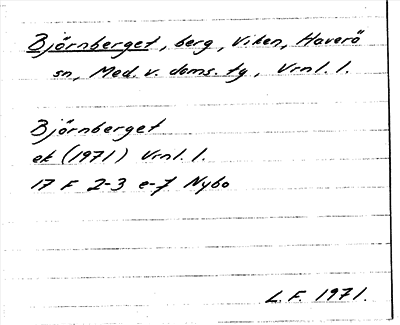 Björnberget, berg, Viken, Haverö
sn, Med. v. doms. tg, Vrnl. l.
Björnberget
ek (1971) Vrnl. l.
17 F 2-3 e-f Nybo
L. F. 1971.